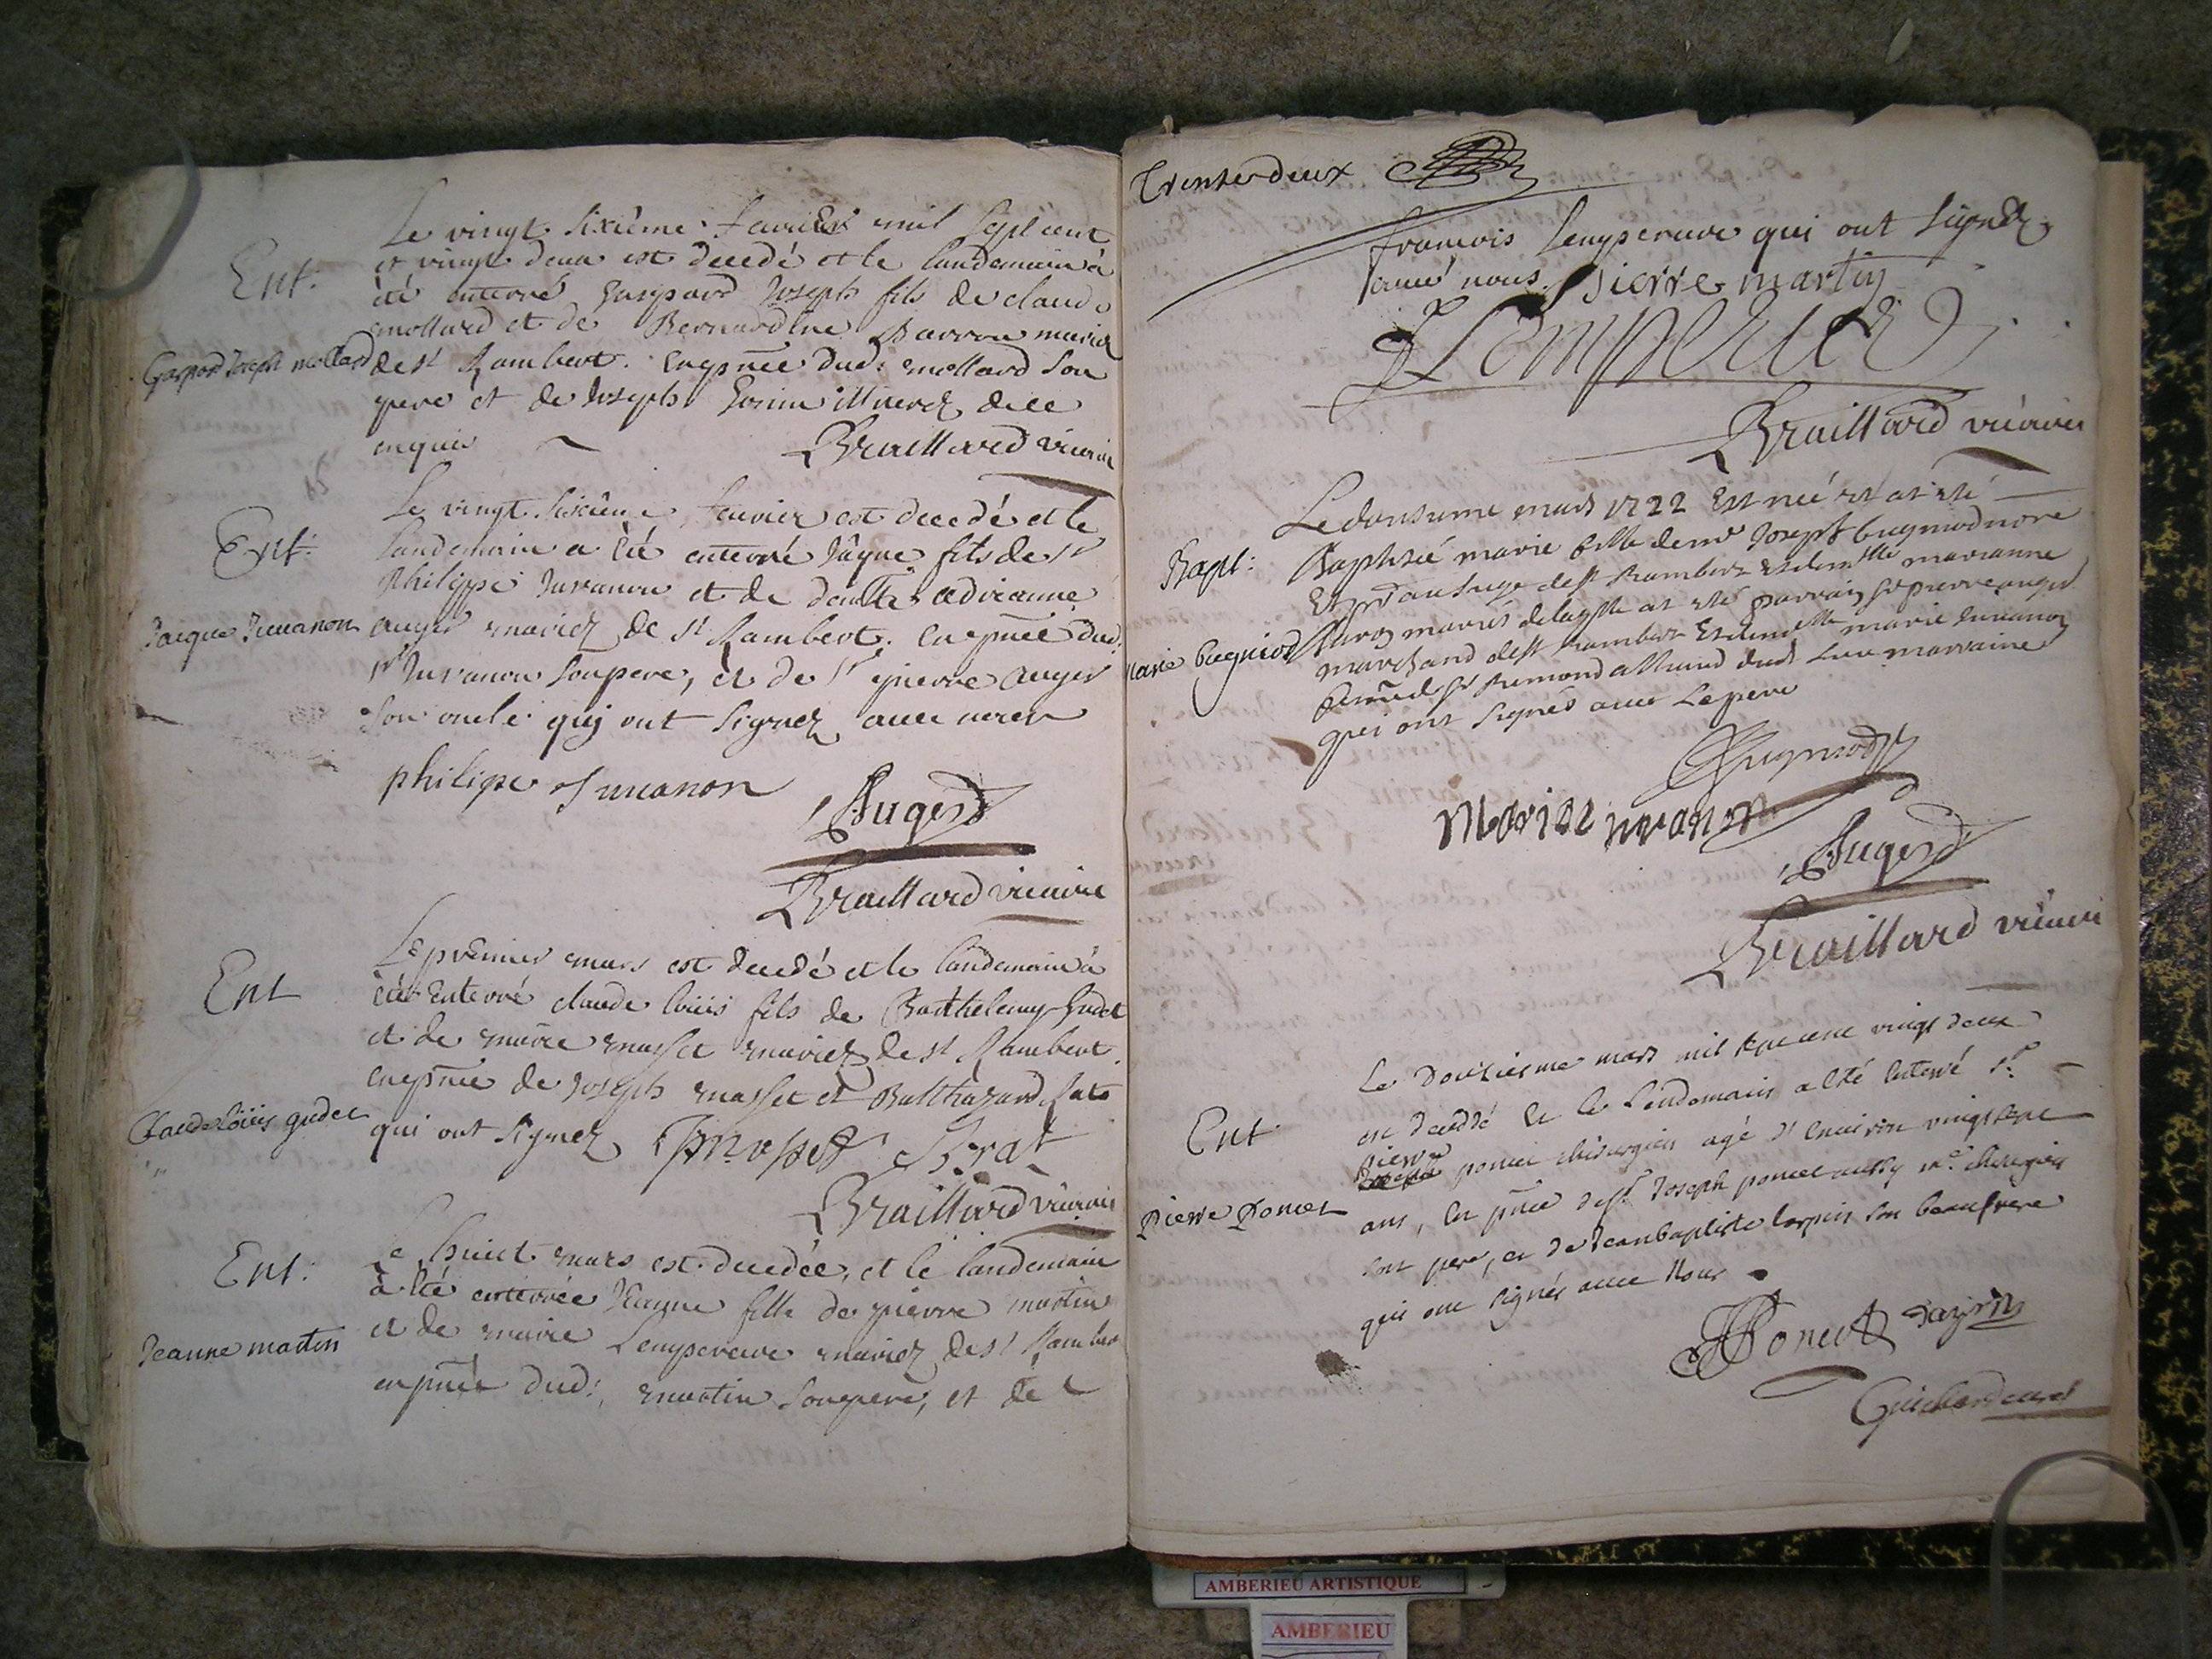 Ent:
Gaspard Joseph mollard
Le vingt sixième fevrier mil sept cent
et vingt deux est decedé et le landemain à
été enterré gaspard Joseph fils de claude
mollard et de Bernardine Barron mariez
de st Rambert. En pnce dud: mollard son
pere et de Joseph
enquis
Braillard vicaire
Ent:
Jacque Juvanon
Le vingt sixième fevrier est decedé et le
landemain a été enterré Jâque fils de sr
Philippe Juvanon et de dlle adrianne
auger mariez de st Rambert. En pnce dud:
sr Juvanon son pere, et de sr pierre auger
son oncle quj ont signez avec
philipe Juvanon
Auger
Braillard vicaire
Ent
Claude loüis gudet
Le premier mars est decedé et le landemain à
été enterré claude loüis fils de Barthelemy gudet
et de marie masset mariez de st Rambert.
en pnce de Joseph masset et Balthazard
qui ont signez
Braillard vicaire
Ent:
Jeanne martin
Le huict mars est decedée, et le landemain
à été enterrée Jeanne fille de pierre martin
et de marie Lempereure mariez de st Rambert
en pnce dud: martin son pere, et de
Trente deux
francois Lempereure qui ont signez
avec nous. Pierre martin
Lempereur
Braillard vicaire
Bapt:
Marie Bugniod
Le donsieme mars 1722 Est née et at été
Baptisée marie fille de mr Joseph bugniod nore
Et au siege de st Rambert Et demlle marianne
mariés delaple at eté parrain sr pierre auger
marchand de st Rambert Et demlle marie Juvanon
femme de sr Remond dud lieu marraine
qui ont signés avec Le pere
Bugniod
Marie Juvanon
Auger
Braillard vicaire
Ent
Pierre Poncet
Le Douziesme mars mil sept cent vingt deux
est decedé et le Lendemain a été enterré Sr
pierre
poncet chirurgien agé d'environ vingt sept
ans, en pnce de sr Joseph poncet aussy me chirurgien
son pere, et de Jean baptiste son beaufrere
qui ont signés avec Nous
Poncet
Guichard curé
AMBERIEU ARTISTIQUE
AMBERIEU